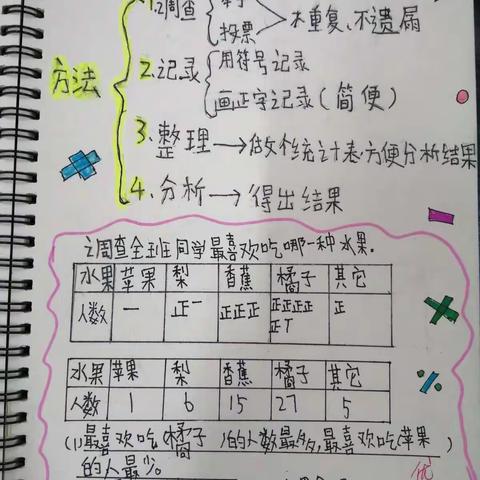 1.调查
投票
不重复、不遗漏
方法
2.记录
用符号记录
画正字记录(简便)
3、整理→做个统计表.方便分析结果
4.分析→得出结果
2调查全班同学最喜欢吃哪一种水果.
水果 苹果 梨 香蕉 橘子 其它
人数 一 正一 正正正 正正正正正丅 正
水果 苹果 梨 香蕉 橘子 其它
人数 1 6 15 27 5
(1)最喜欢吃(橘子)的人数最多,最喜欢吃(苹果)
的人最少。
优